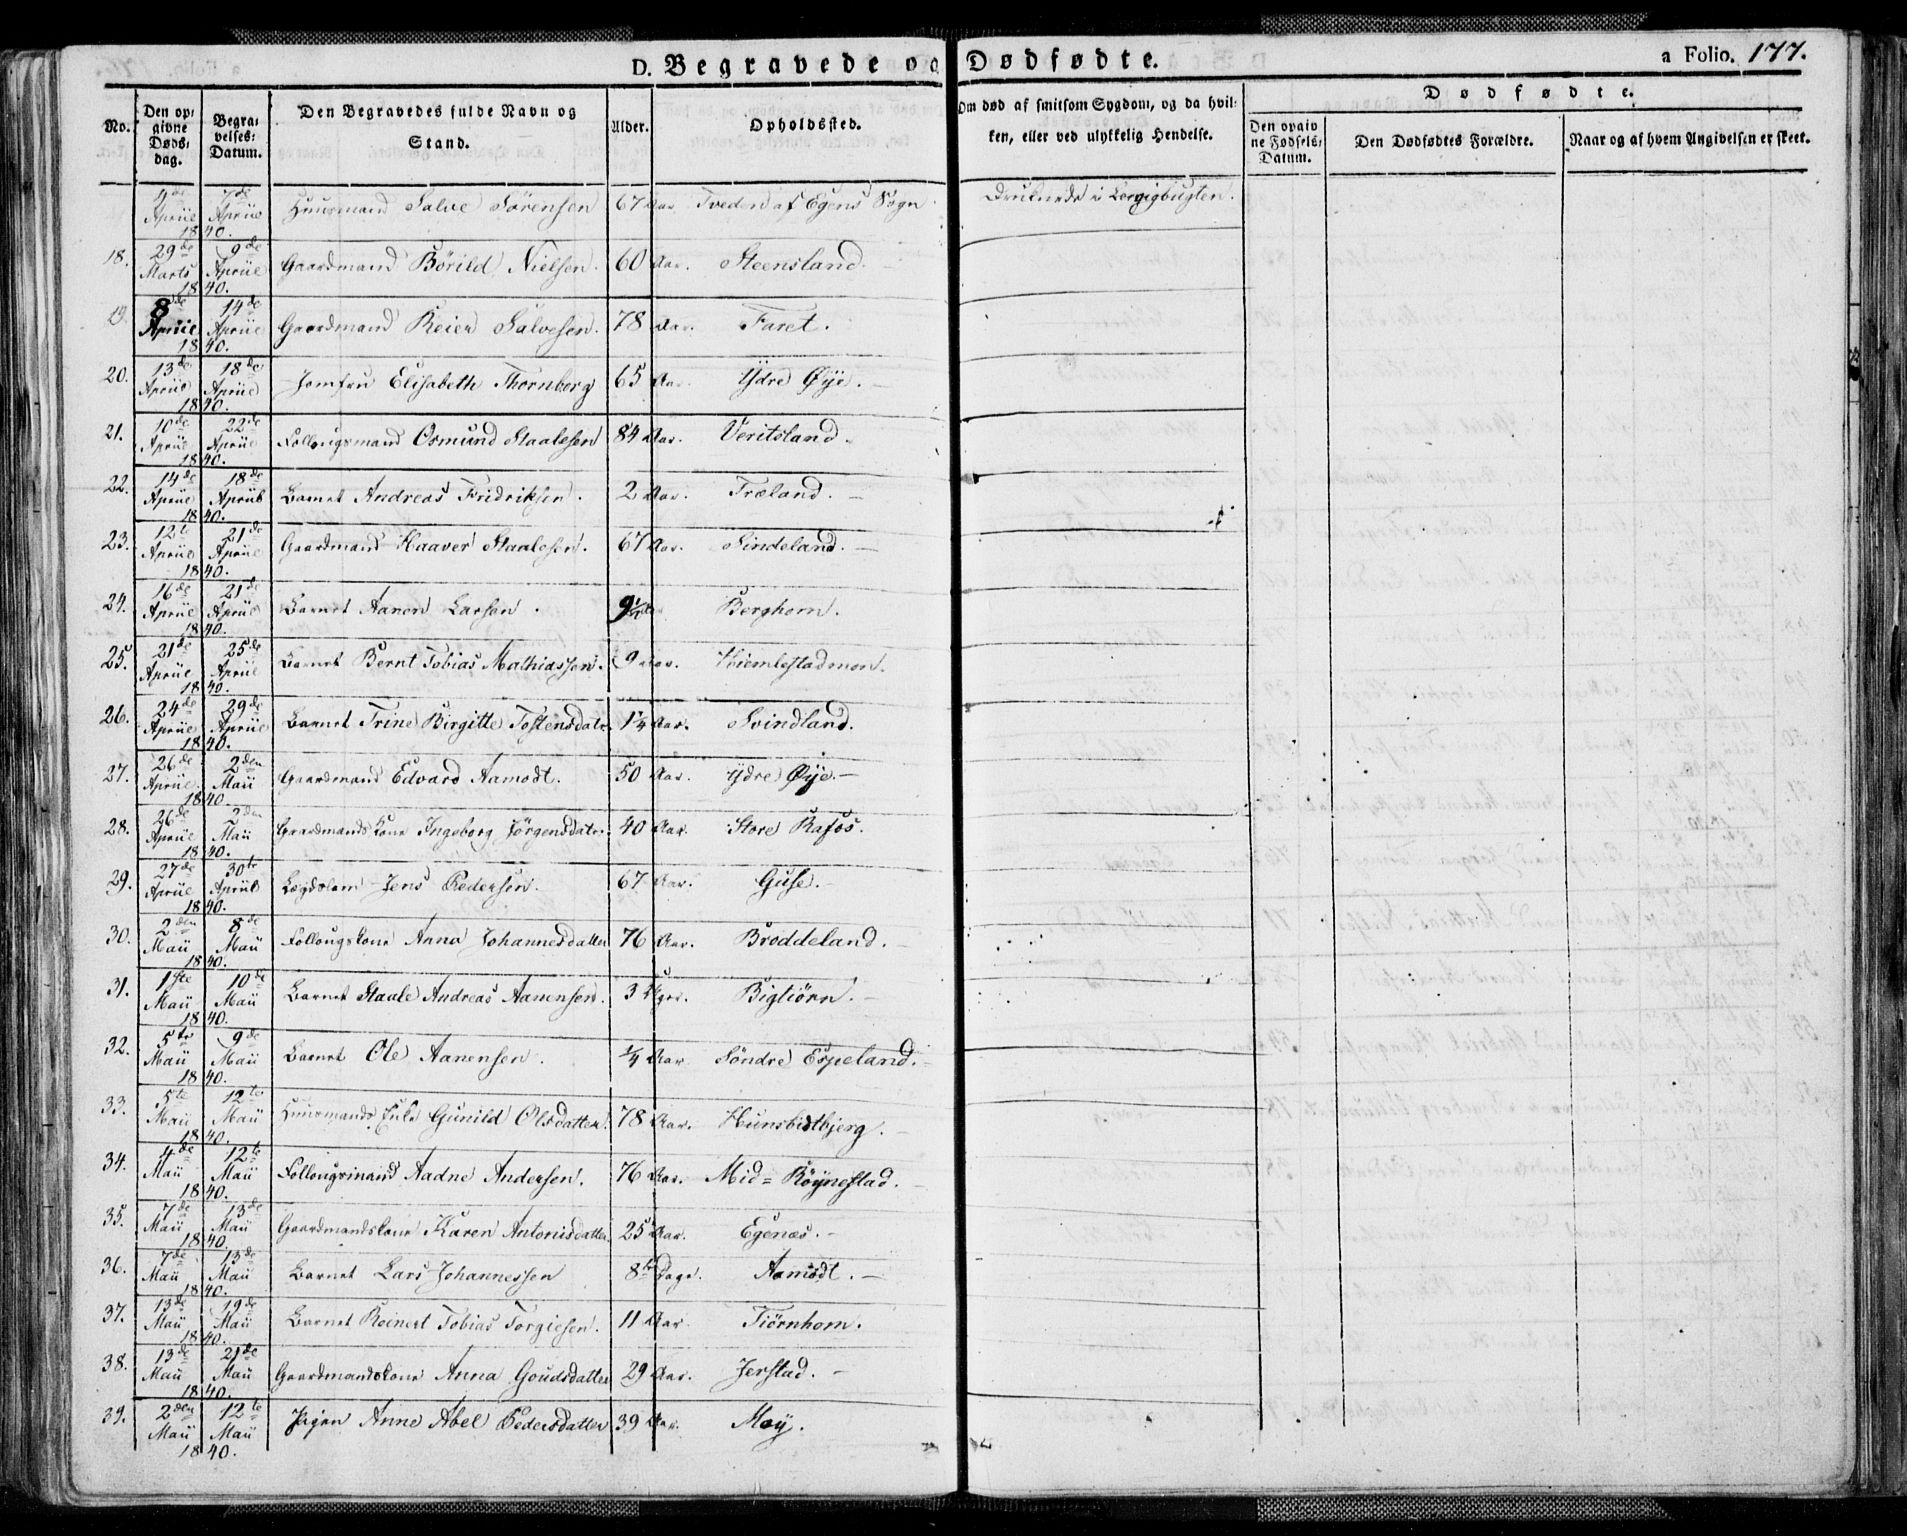 D. Begravede og Dødfødte. a Folio. 177.
No. Den opgivne Døds-dag. Begravelses-Datum. Den Begravedes fulde Navn og Stand. Alder. Opholdssted. Om død af smitsom Sygdom, og da hvilken, eller ved ulykkelig Hendelse. Dødfødte.
Den opgivne Fødsels-Datum. Den Dødfødtes Forældre. Naar og af hvem Angivelsen er skeet.
4de Aprül 7de Aprül 1840. Huusmand Salve Sørensen 67 Aar. Tveden af Egens Sogn. Druknede i Lervigbugten.
18. 29de Marts 9de Aprül 1840. Gaardmand Børild Nielsen. 60 Aar. Steensland.
19. 8de Aprül 14de Aprül 1840. Gaardmand Reier Salvesen. 78 Aar. Faret.
20. 13de Aprül 18de Aprül 1840. Jomfru Elisabeth Thornberg 65 Aar. Ydre Øÿe.
21. 10de Aprül 22de Aprül 1840. Follougsmand Osmund Staalesen 84 Aar. Veritsland.
22. 14de Aprül 18de Aprül 1840. Barnet Andreas Fridriksen. 2 Aar. Træland.
23. 12te Aprül 21de Aprül 1840. Gaardmand Haaver Staalesen. 67 Aar. Sindeland.
24. 16de Aprül 21de Aprül 1840. Barnet Aanen Larsen. Berghom.
25. 21de Aprül 25de Aprül 1840. Barnet Bernt Tobias Mathiassen. 9 Aar. Hiemlestadmon.
26. 24de Aprül 29de Aprül 1840. Barnet Trine Birgitte Tostensdatr. 1¼ Aar. Svindland.
27. 26de Aprül 2den Maÿ 1840. Gaardmand Edvard Aamodt. 50 Aar. Ydre Øÿe.
28. 26de Aprül 2den Maÿ 1840. Gaardmands Kone Ingeborg Jørgensdatr. 40 Aar. Store Rafos.
29. 27de Aprül 30te Aprül 1840. Lægdslem Jens Pedersen. 67 Aar. Guse.
30. 2den Maÿ 8de Maÿ 1840. Follougskone Anna Johannesdatter 76 Aar. Broddeland.
31. 1ste Maÿ 10de Maÿ 1840. Barnet Staale Andreas Aanensen. 3 Bigtiørn.
32. 5te Maÿ 9de Maÿ 1840. Barnet Ole Aanensen. ¼ Aar Søndre Espeland.
33. 5te Maÿ 12te Maÿ 1840. Huusmands Enke Gunild Olsdatter. 78 Aar. Hunsbidtbjerg.
34. 4de Maÿ 12te Maÿ 1840. Follougsmand Aadne Andersen. 76 Aar. Mid=Røÿnestad.
35. 7de Maÿ 13de Maÿ 1840. Gaardmandskone Karen Antonisdatter 25 Aar. Egenæs.
36. 7de Maÿ 13de Maÿ 1840. Barnet Lars Johannessen 8te Dage. Aamodt.
37. 13de Maÿ 19de Maÿ 1840. Barnet Reinert Tobias Torgiesen. 11 Aar Tiørnhom.
38. 13de Maÿ 21de Maÿ 1840. Gaardmandskone Anna Goudsdatter 29 Aar. Jerstad.
39. 2den Maÿ 12te Maÿ 1840. Pigen Anne Abel Pedersdatter 39 Aar. Moÿ.